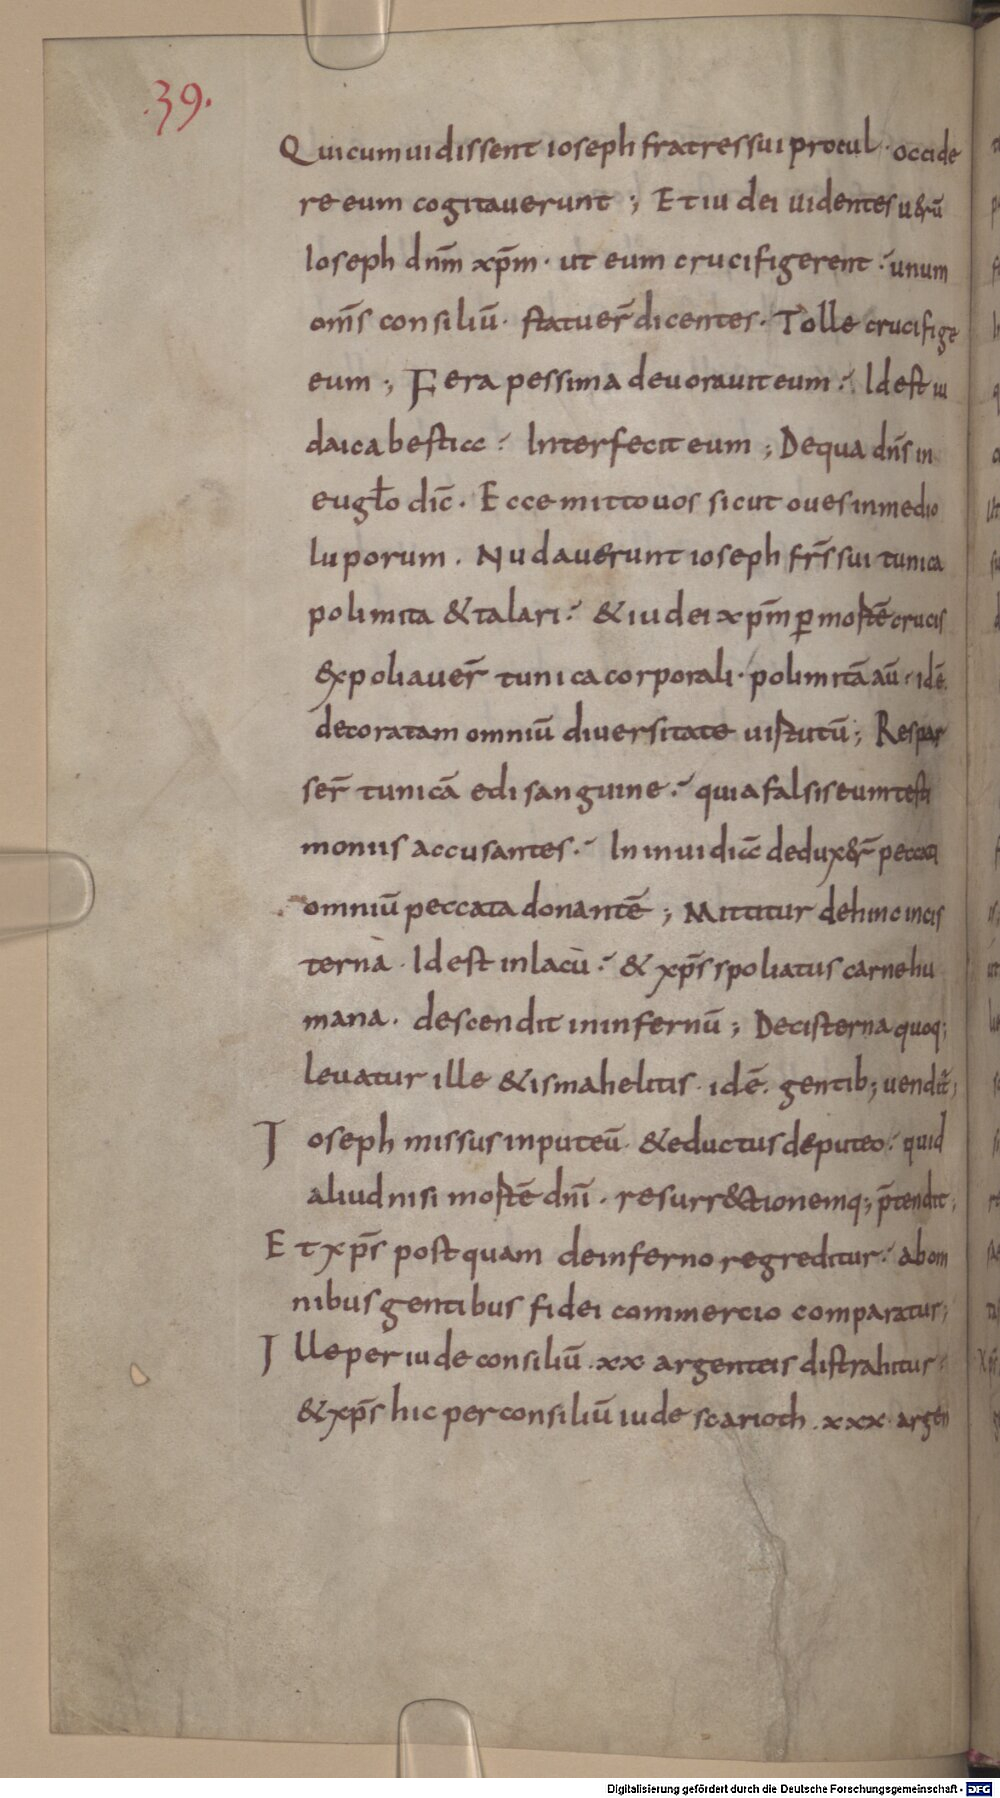 .39.
Qui cum uidissent ioseph fratres sui procul. occide
re eum cogitauerunt; Et iudei uidentes uerū
Ioseph dnm̄ xpm̄. ut eum crucifigerent. unum
om̄s consiliū. statuer̄ dicentes. Tolle crucifige
eum; Fera pessima deuorauit eum. Id est iu
daica bestia. Interfecit eum; De qua dn̄s in
euglo dic̄. Ecce mitto uos sicut oues in medio
luporum. Nudauerunt ioseph fr̄s sui tunica
polimita & talari. & iudei xpm̄ p mortē crucis
expoliauer̄ tunica corporali. polimitā aū. idē.
decoratam omniū diuersitate uirtutū; Respar
ser̄ tunicā edi sanguine. quia falsis eum testi
moniis accusantes. In inuidia deduxer̄ peccata
omniū peccata donantē; Mittitur dehinc in cis
terna. Id est in lacu. & xps̄ spoliatus carne hu
mana. descendit in infernū; De cisterna quoq;
leuatur ille & ismahelitis. idē. gentib; uendit̄;
Ioseph missus in puteū. & eductus de puteo. quid
aliud nisi mortē dni̅. resurr&ctionemq; p̄tendit;
Et xps̄ postquam de inferno regreditur. ab om
nibus gentibus fidei commercio comparatur;
Ille per iude consiliū. xx argenteis distrahitur.
& xps̄ hic per consiliū iude scarioth. xxx. argen
Digitalisierung gefördert durch die Deutsche Forschungsgemeinschaft - DFG